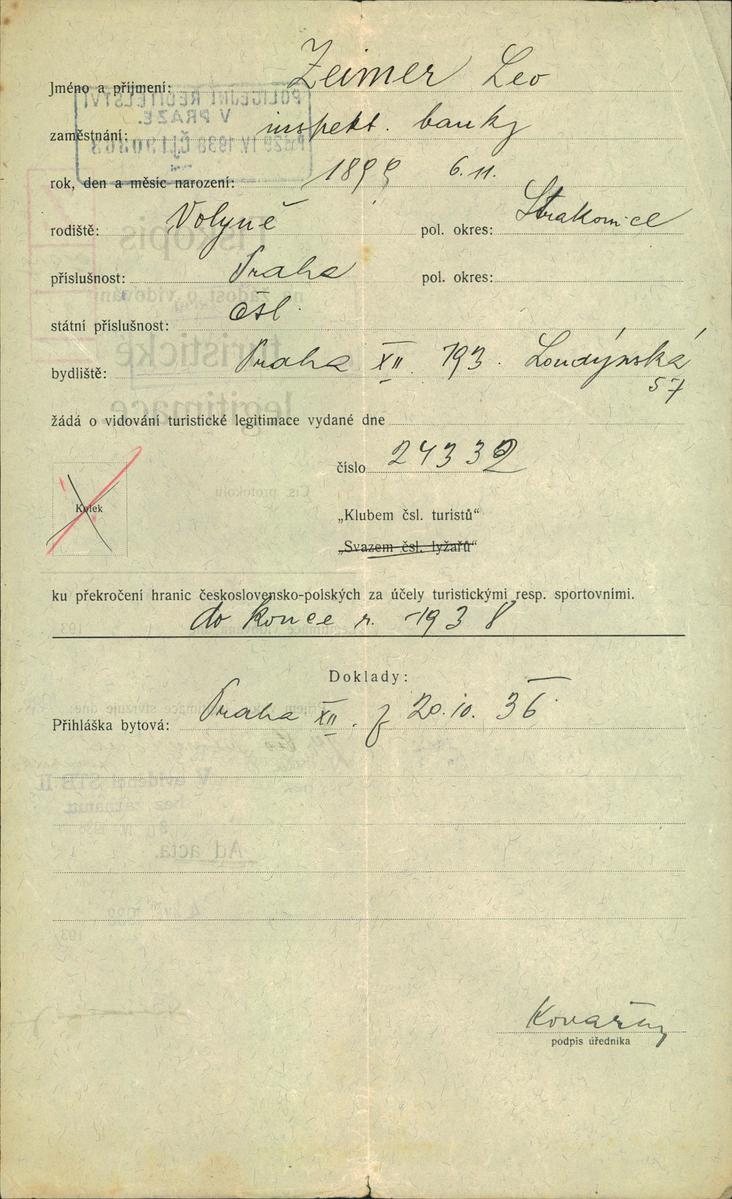 Jméno a příjmení: Zeimer Leo
zaměstnání: inspekt. banky
rok, den a měsíc narození: 1899 6.11.
rodiště: Volyně pol. okres: Strakonice
příslušnost: Praha pol. okres:
státní příslušnost: čsl.
bydliště: Praha XII. 793. Londýnská
57
žádá o vidování turistické legitimace vydané dne
číslo 24332
Kolek
„Klubem čsl. turistů“
„Svazem čsl. lyžařů“
ku překročení hranic československo-polských za účely turistickými resp. sportovními.
do konce r. 1938
Doklady:
Přihláška bytová: Praha XII. z 20.10. 36
podpis úředníka